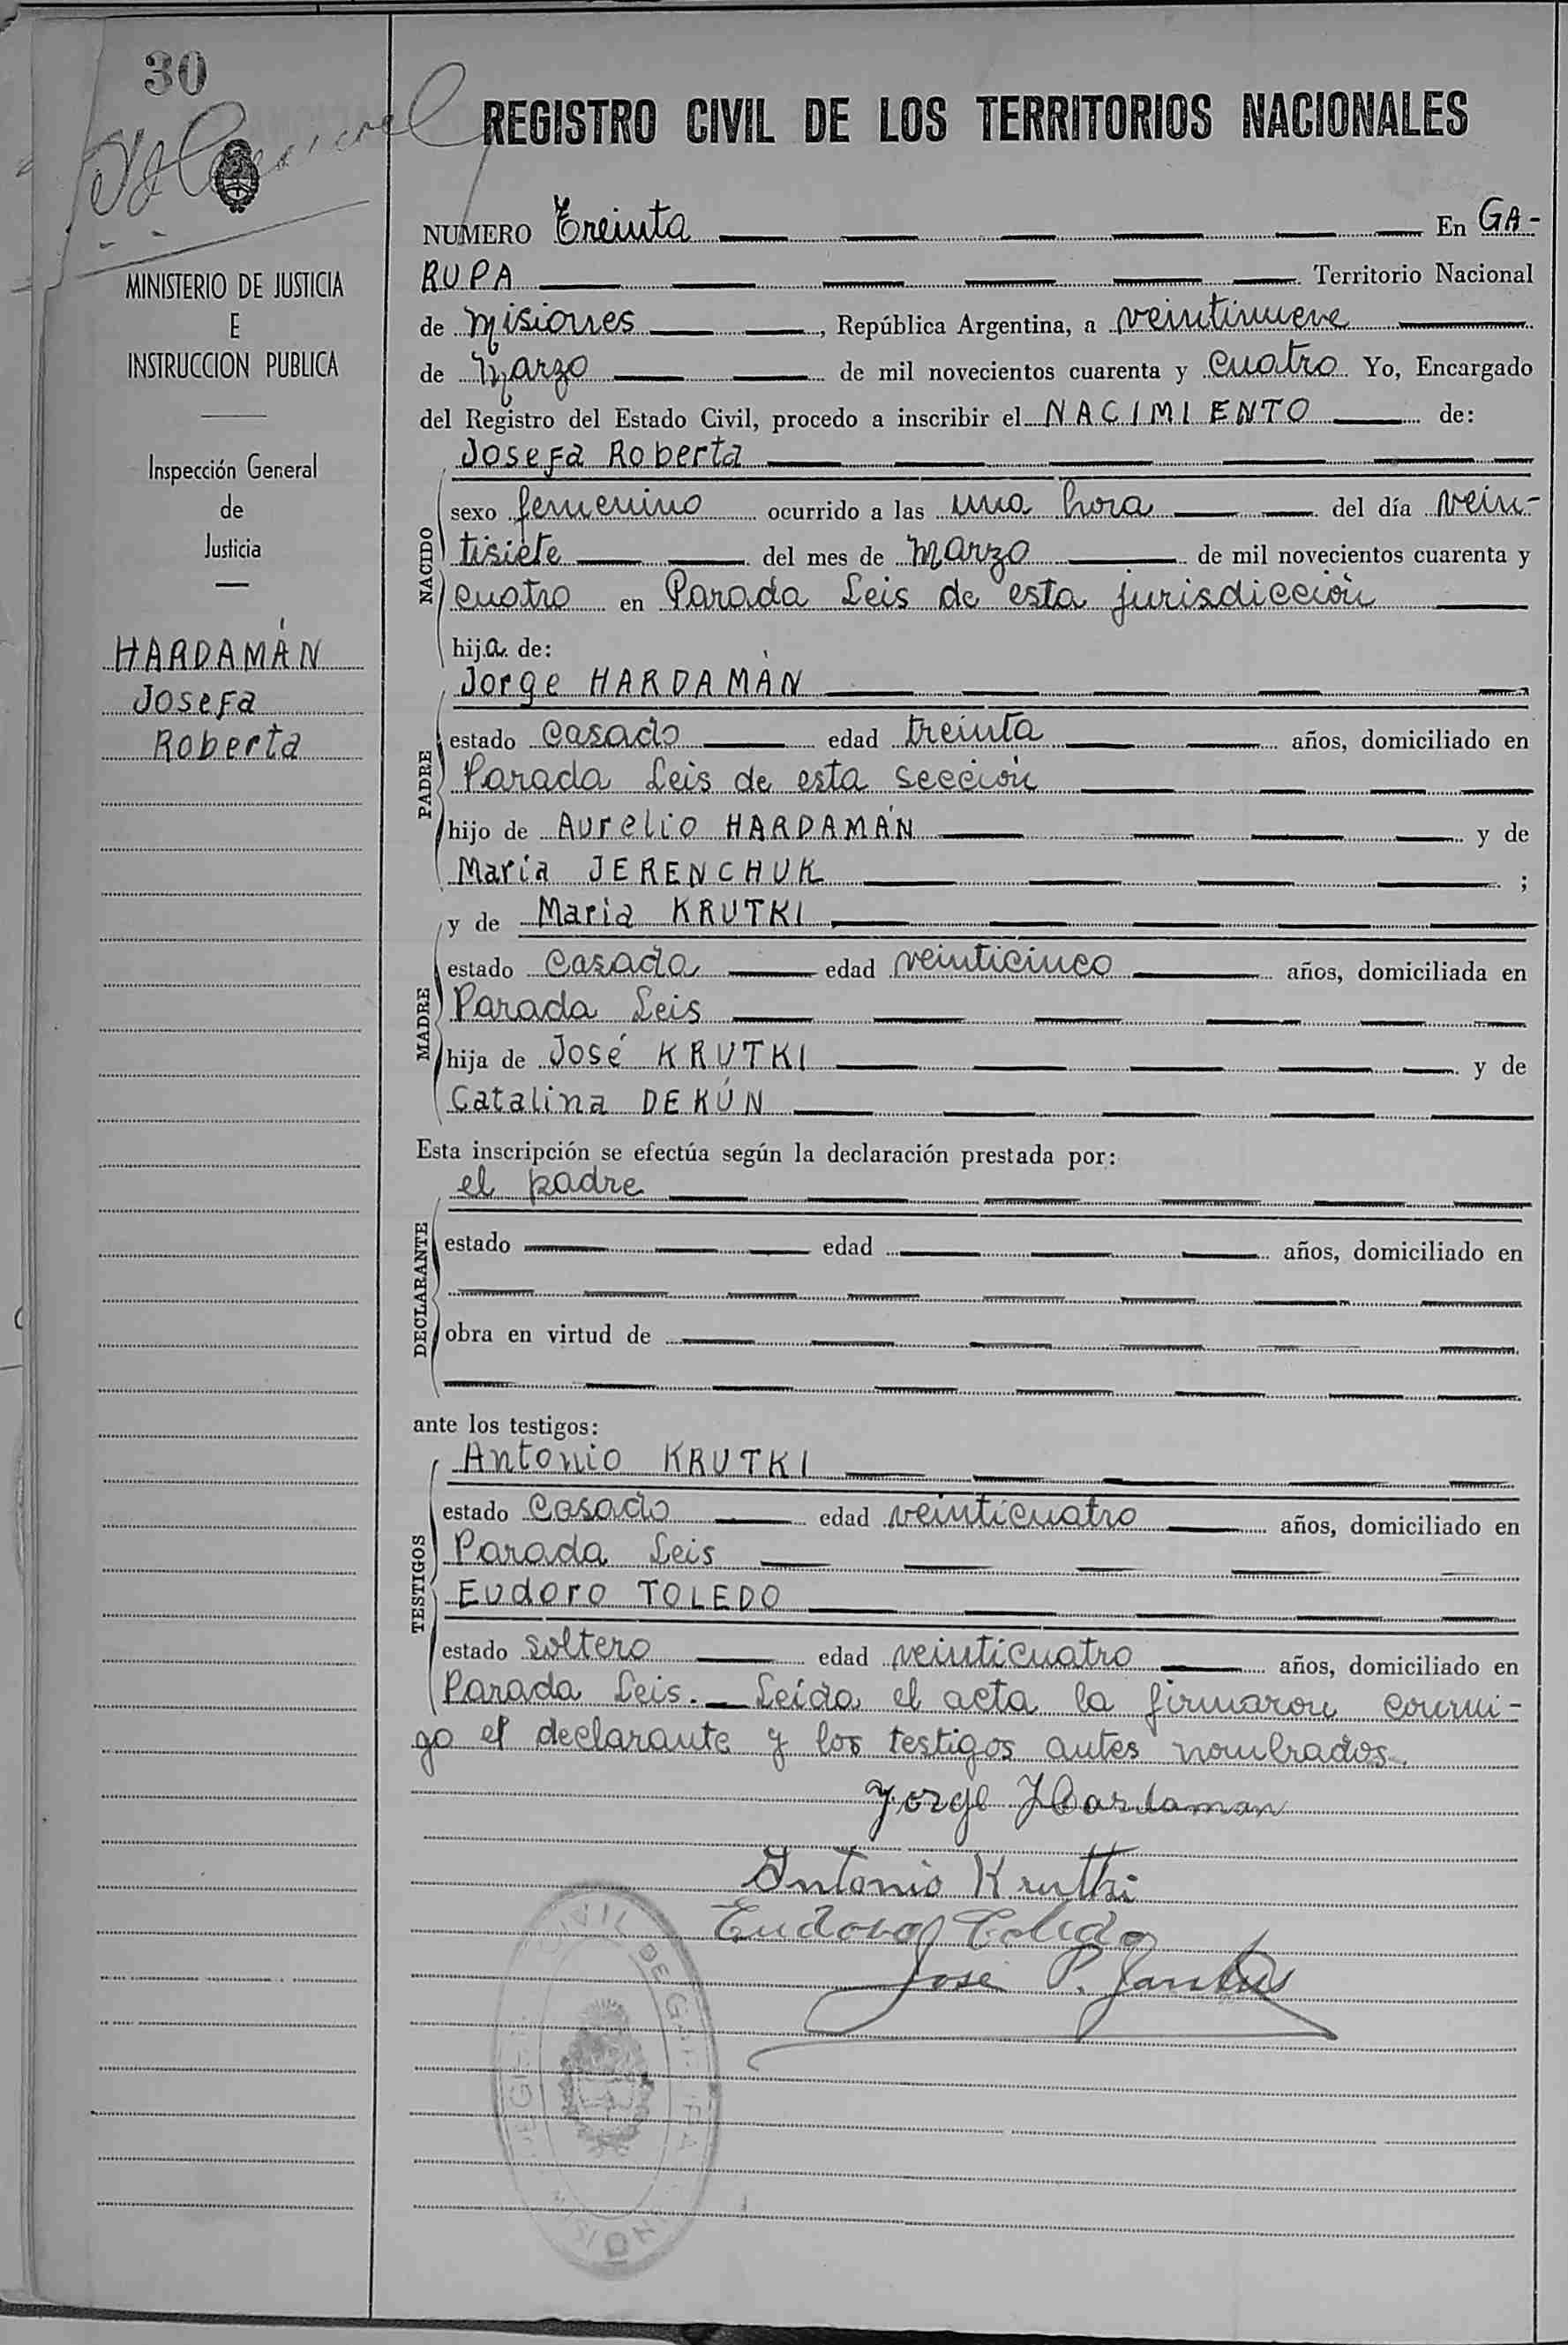 30
REGISTRO CIVIL DE LOS TERRITORIOS NACIONALES
MINISTERIO DE JUSTICIA
E
INSTRUCCION PUBLICA
Inspección General
de
Justicia
HARDAMÁN
Josefa
Roberta
NUMERO Treinta En GA-
RUPA Territorio Nacional
de Misiones, República Argentina, a veintinueve
de Marzo de mil novecientos cuarenta y cuatro Yo, Encargado
del Registro del Estado Civil, procedo a inscribir el NACIMIENTO de:
Josefa Roberta
NACIDO
sexo femenino ocurrido a las una hora del día vein-
tisiete del mes de Marzo de mil novecientos cuarenta y
cuatro en Parada Leis de esta jurisdicción
hija de:
Jorge HARDAMÁN
PADRE
estado casado edad treinta años, domiciliado en
Parada Leis de esta sección
hijo de Aurelio HARDAMÁN y de
María JERENCHUK ;
y de María KRUTKI
MADRE
estado casada edad veinticinco años, domiciliada en
Parada Leis
hija de José KRUTKI y de
Catalina DEKÚN
Esta inscripción se efectúa según la declaración prestada por:
el padre
DECLARANTE
estado edad años, domiciliado en
obra en virtud de
ante los testigos:
Antonio KRUTKI
TESTIGOS
estado casado edad veinticuatro años, domiciliado en
Parada Leis
Eudoro TOLEDO
estado soltero edad veinticuatro años, domiciliado en
Parada Leis. Leída el acta la firmaron conmi-
go el declarante y los testigos antes nombrados.
Jorge Hardaman
Antonio Krutki
Eudoro Toledo
José P.
CIVIL DE GARUPA